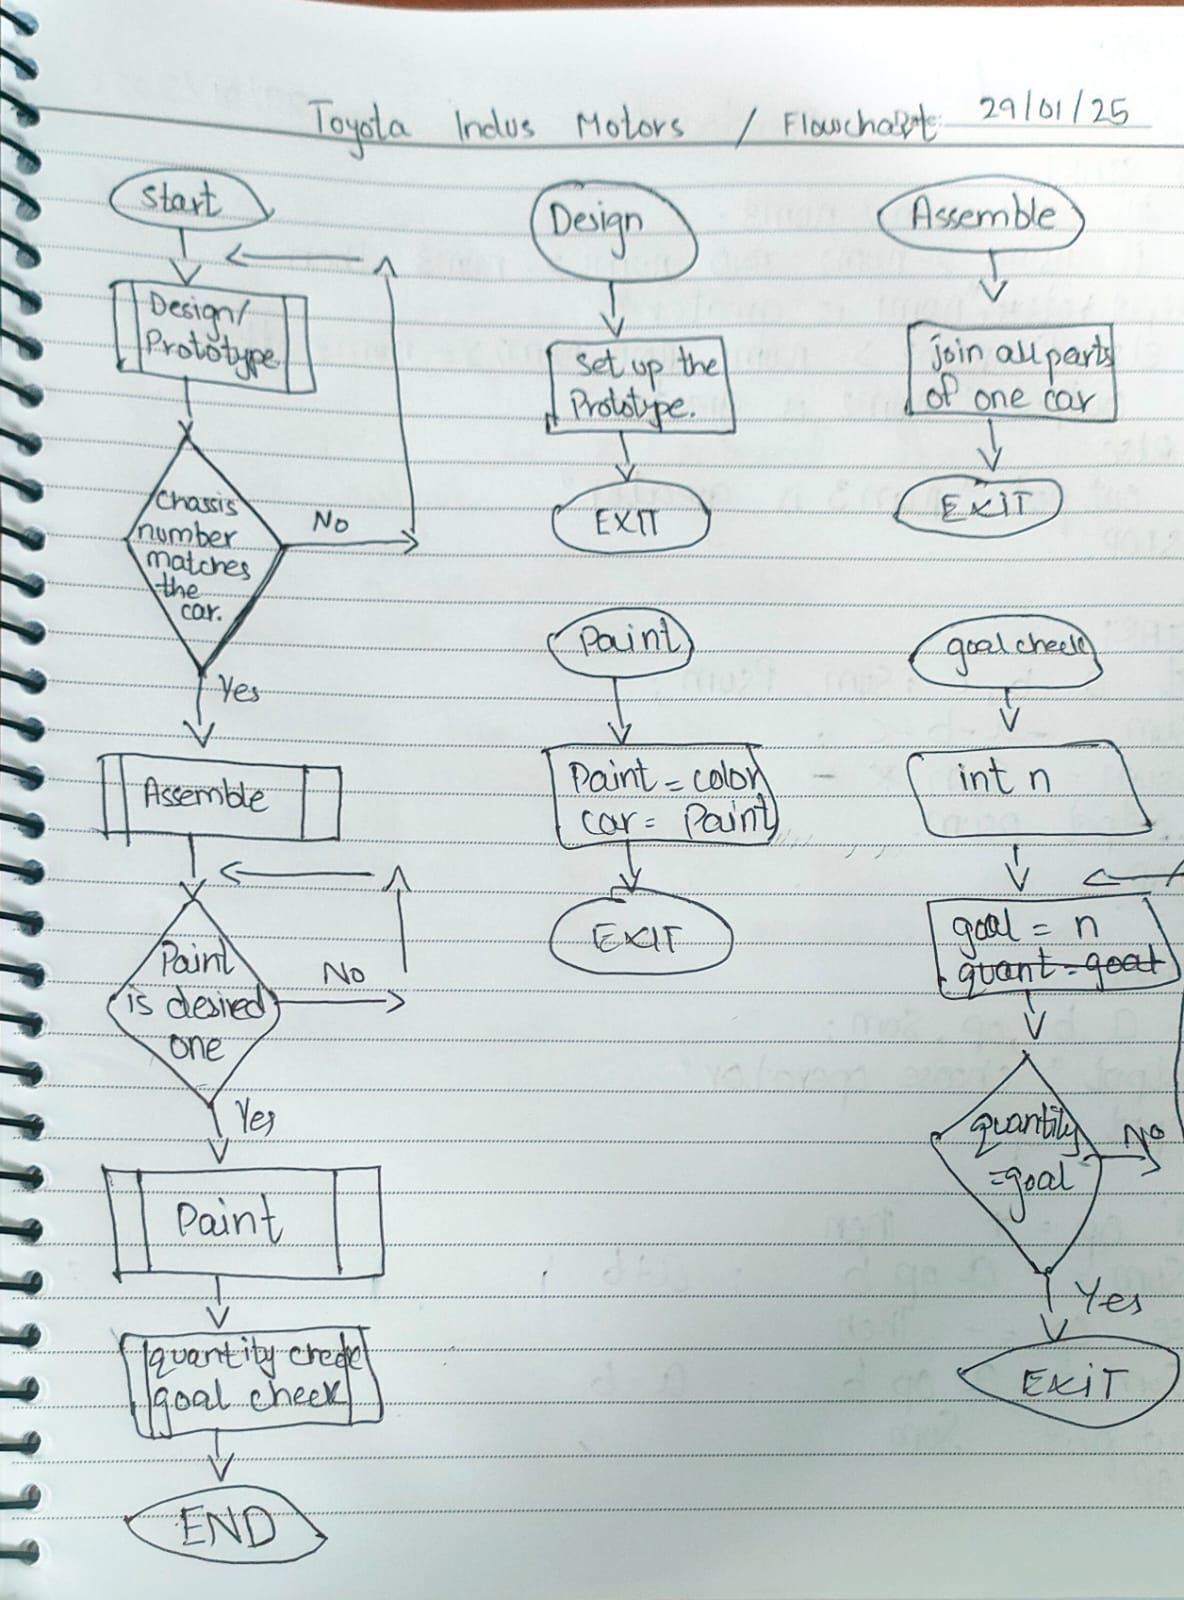 Toyota Indus Motors / Flowchart
Date: 29/01/25
Start
Design/
Prototype
Chassis
number
matches
the
car.
No
Yes
Assemble
Paint
is desired
one
No
Yes
Paint
quantity check
goal check
END
Design
Set up the
Prototype.
EXIT
Assemble
join all parts
of one car
EXIT
Paint
Paint = color
car = Paint
EXIT
goal check
int n
goal = n
quant = goal
quantity
=goal
No
Yes
EXIT